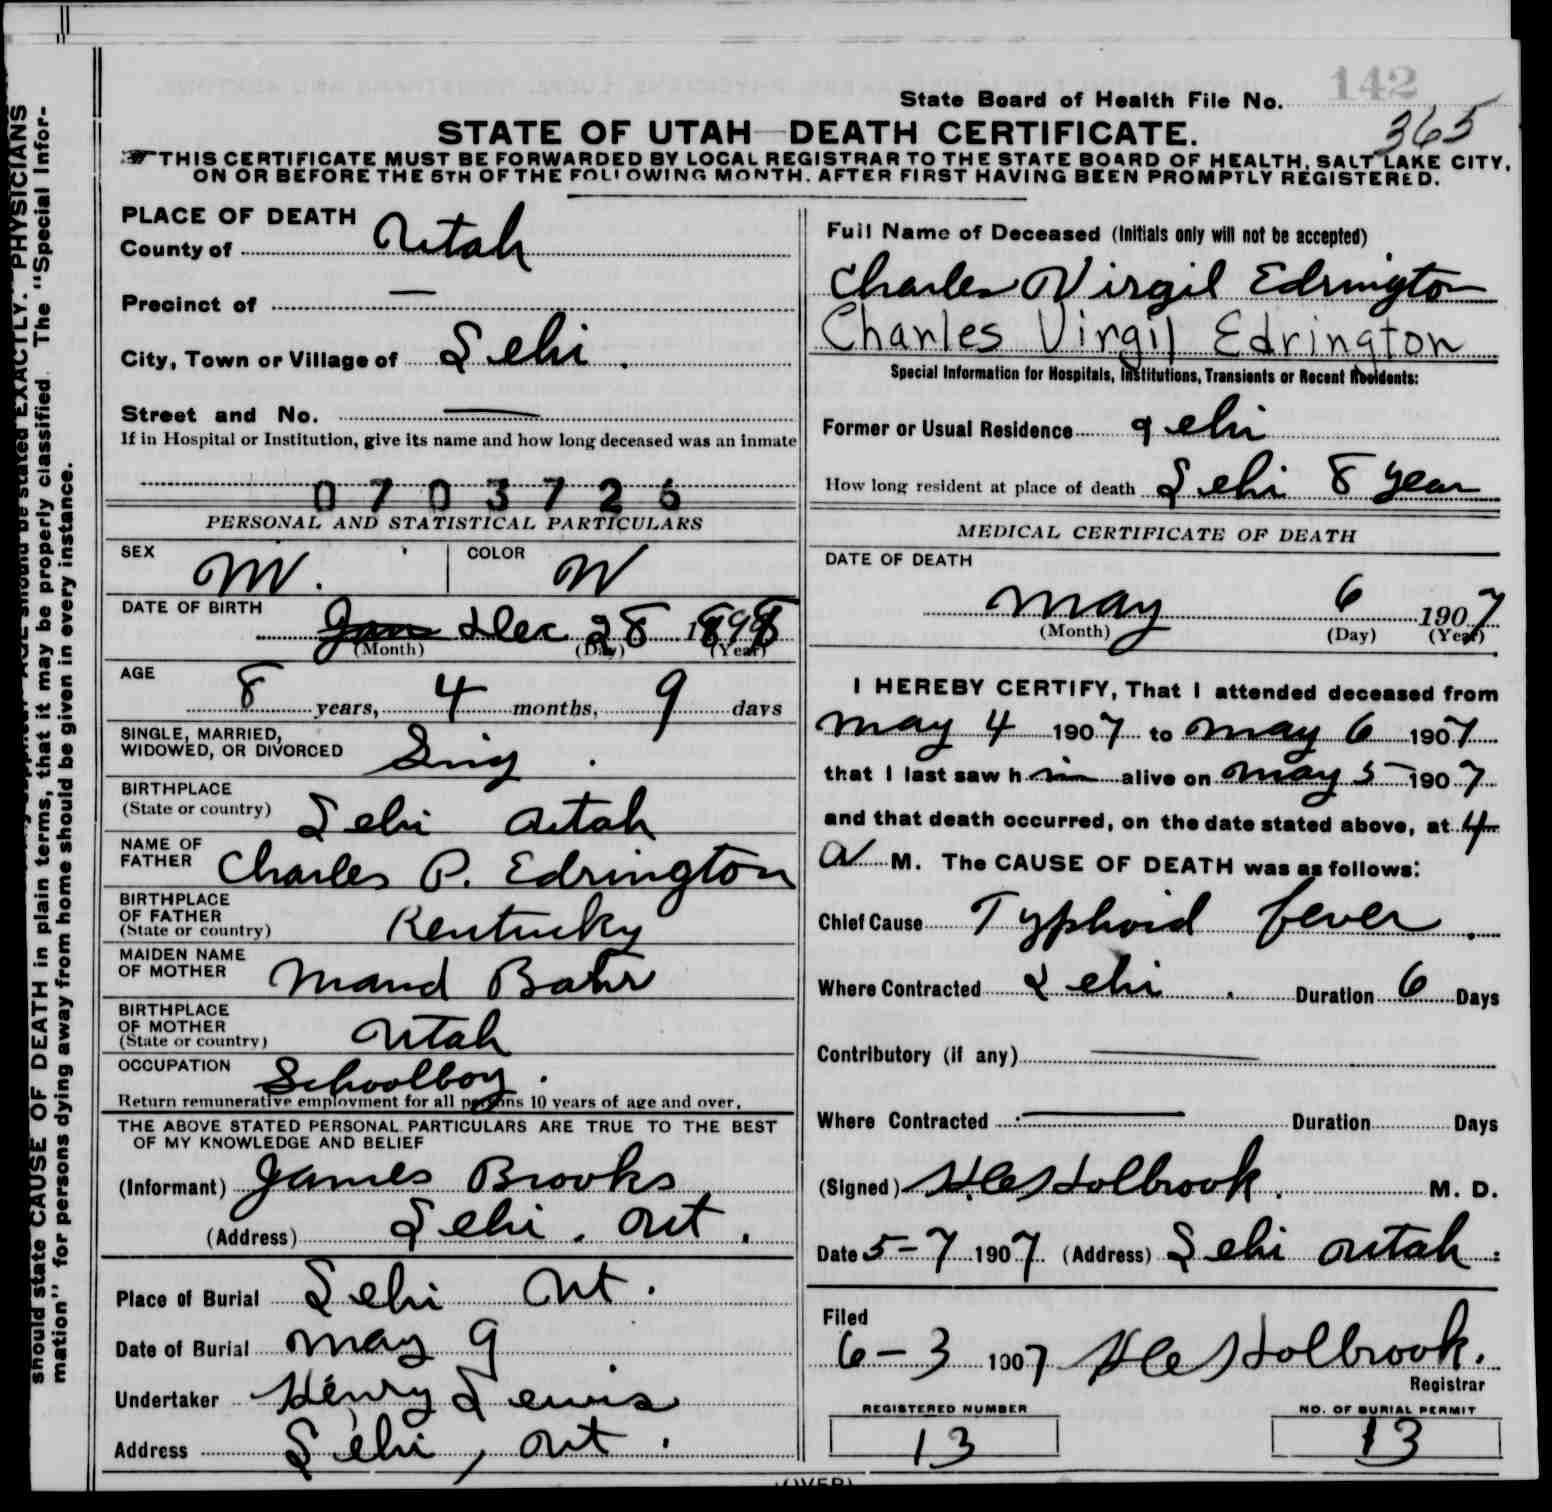 142
State Board of Health File No. 365
STATE OF UTAH—DEATH CERTIFICATE.
THIS CERTIFICATE MUST BE FORWARDED BY LOCAL REGISTRAR TO THE STATE BOARD OF HEALTH, SALT LAKE CITY,
ON OR BEFORE THE 5TH OF THE FOLLOWING MONTH. AFTER FIRST HAVING BEEN PROMPTLY REGISTERED.
PLACE OF DEATH
County of Utah
Precinct of —
City, Town or Village of Lehi.
Street and No. —
If in Hospital or Institution, give its name and how long deceased was an inmate
0703726
PERSONAL AND STATISTICAL PARTICULARS
SEX M. COLOR W
DATE OF BIRTH Jan Dec 28 1898
(Month) (Day) (Year)
AGE
8 years, 4 months, 9 days
SINGLE, MARRIED,
WIDOWED, OR DIVORCED Sing.
BIRTHPLACE
(State or country) Lehi Utah
NAME OF
FATHER Charles P. Edrington
BIRTHPLACE
OF FATHER
(State or country) Kentucky
MAIDEN NAME
OF MOTHER Maud
BIRTHPLACE
OF MOTHER
(State or country) Utah
OCCUPATION Schoolboy.
Return remunerative employment for all persons 10 years of age and over.
THE ABOVE STATED PERSONAL PARTICULARS ARE TRUE TO THE BEST
OF MY KNOWLEDGE AND BELIEF
(Informant) James Brooks
(Address) Lehi. Ut.
Place of Burial Lehi Ut.
Date of Burial May 9
Undertaker Henry Lewis
Address Lehi, Ut.
Full Name of Deceased (Initials only will not be accepted)
Charles Virgil Edrington
Charles Virgil Edrington
Special Information for Hospitals, Institutions, Transients or Recent Residents:
Former or Usual Residence Lehi
How long resident at place of death Lehi 8 year
MEDICAL CERTIFICATE OF DEATH
DATE OF DEATH
May 6 1907
(Month) (Day) (Year)
I HEREBY CERTIFY, That I attended deceased from
May 4 1907 to May 6 1907
that I last saw h im alive on May 5 1907
and that death occurred, on the date stated above, at 4
A M. The CAUSE OF DEATH was as follows:
Chief Cause Typhoid fever.
Where Contracted Lehi. Duration 6 Days
Contributory (if any) —
Where Contracted — Duration Days
(Signed) Holbrook. M. D.
Date 5-7 1907 (Address) Lehi Utah.
Filed
6-3 1907 Holbrook.
Registrar
REGISTERED NUMBER
13
NO. OF BURIAL PERMIT
13
(OVER)
AGE should be stated EXACTLY. PHYSICIANS
should state CAUSE OF DEATH in plain terms, that it may be properly classified. The "Special Infor-
mation" for persons dying away from home should be given in every instance.